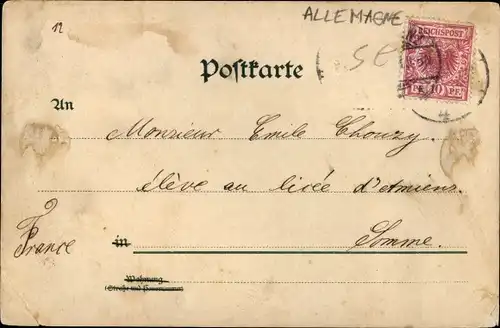 12
ALLEMAGNE
REICHSPOST
PF. 10 PF.
Postkarte
An
Monsieur Emile Chouzy.
élève au licée d'Amiens.
France
in Somme.
Wohnung
(Straße und Hausnummer)